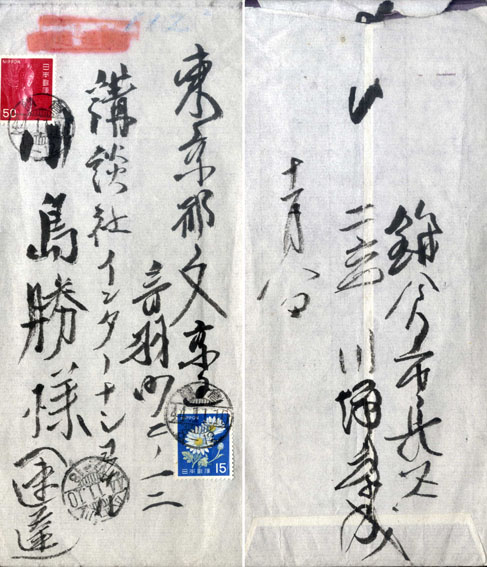 東京都文京区
音羽町二ノ一二
講談社インターナショナル
川島勝様
速達
日本郵便
NIPPON
50
NIPPON
日本郵便
15
〆
鎌倉市長谷
川端康成
十一月八日